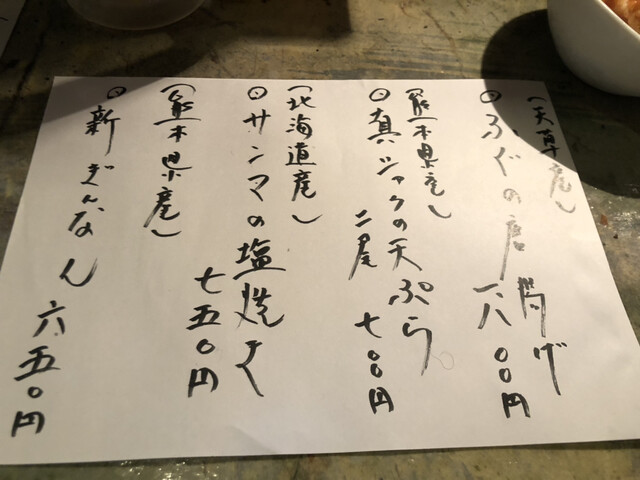 (天草産)
◉ふぐの唐揚げ
八〇〇円
(熊本県産)
◉真シャクの天ぷら
二尾 七〇〇円
(北海道産)
◉サンマの塩焼き
七五〇円
(熊本県産)
◉新ぎんなん 六五〇円